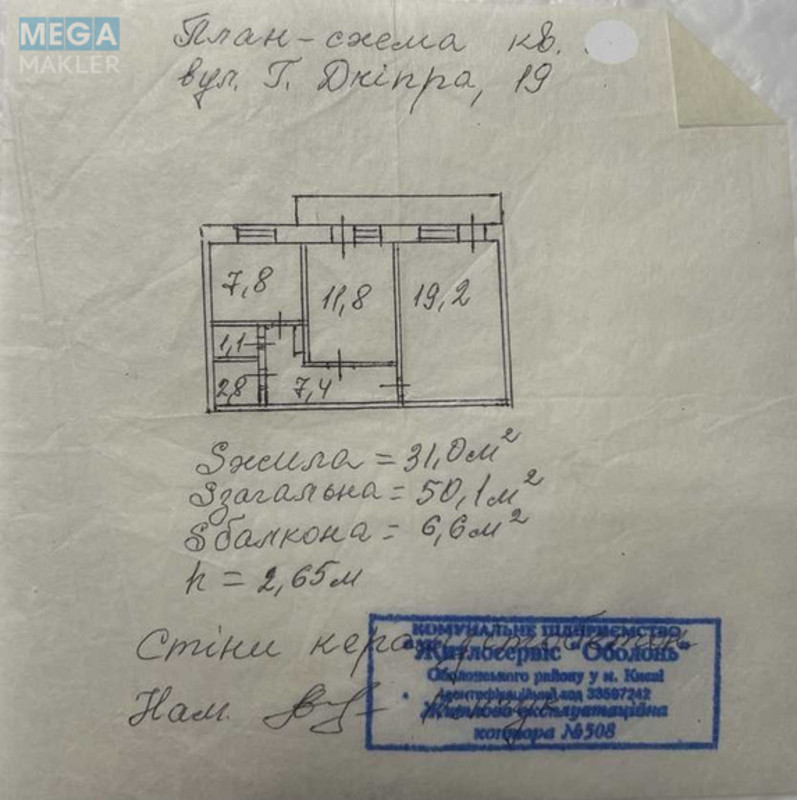 MEGA
MAKLER
План-схема кв.
вул. Г. Дніпра, 19
7,8
11,8
19,2
1,1
2,8
7,4
Sжила = 31,0 м²
Sзагальна = 50,1 м²
Sбалкона = 6,6 м²
h = 2,65 м
Стіни керамзитобетон
КОМУНАЛЬНЕ ПІДПРИЄМСТВО
"Житлосервіс "Оболонь"
Оболонського району у м. Києві
Ідентифікаційний код 33597242
Житлово експлуатаційна
контора №508
Нам.